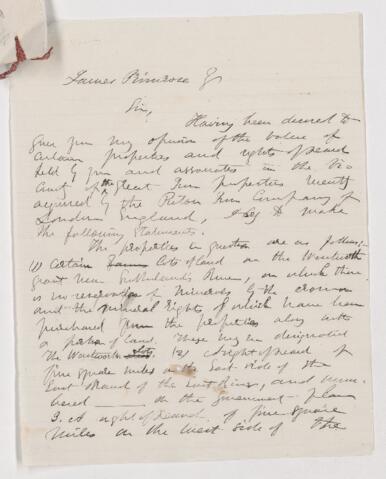 James Primrose Esq
Sir,
Having been desired to
give you my opinion of the value of
certain properties and rights of search
held by you and associates in the vic
inity of the great Iron properties recently
acquired by the Picton Iron Company of
London England, I beg to make
the following statements.
The properties in question are as follows;
(1) Certain Lots of Land on the Wentworth
grant near Sutherland's River, on which there
is no reservation of minerals by the crown
and the mineral rights of which have been
purchased from the properties along with
a portion of land. These may be designated
the Wentworth lots (2) A right of search of
five square miles on the East side of the
East Branch of the East River, and num
bered ____ on the government plan
3. A right of search of five square
miles on the West side of the